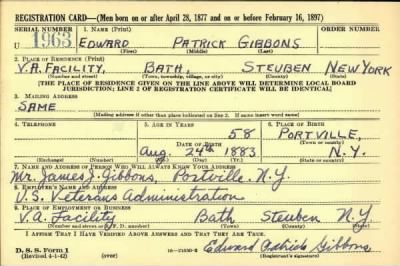 REGISTRATION CARD—(Men born on or after April 28, 1877 and on or before February 16, 1897)
SERIAL NUMBER 1. NAME (Print) ORDER NUMBER
U 1963 EDWARD PATRICK GIBBONS
(First) (Middle) (Last)
2. PLACE OF RESIDENCE (Print)
V.A. FACILITY, BATH, STEUBEN NEW YORK
(Number and street) (Town, township, village, or city) (County) (State)
[THE PLACE OF RESIDENCE GIVEN ON THE LINE ABOVE WILL DETERMINE LOCAL BOARD
JURISDICTION; LINE 2 OF REGISTRATION CERTIFICATE WILL BE IDENTICAL]
3. MAILING ADDRESS
SAME
[Mailing address if other than place indicated on line 2. If same insert word same]
4. TELEPHONE 5. AGE IN YEARS 6. PLACE OF BIRTH
58 PORTVILLE,
DATE OF BIRTH (Town or county)
Aug. 24th 1883 N.Y.
(Exchange) (Number) (Mo.) (Day) (Yr.) (State or country)
7. NAME AND ADDRESS OF PERSON WHO WILL ALWAYS KNOW YOUR ADDRESS
Mr. James J. Gibbons, Portville. N.Y.
8. EMPLOYER'S NAME AND ADDRESS
U.S. Veterans Administration
9. PLACE OF EMPLOYMENT OR BUSINESS
V.A. Facility Bath Steuben N.Y.
(Number and street or R. F. D. number) (Town) (County) (State)
I AFFIRM THAT I HAVE VERIFIED ABOVE ANSWERS AND THAT THEY ARE TRUE.
D. S. S. Form 1 Edward Patrick Gibbons
(Revised 4-1-42) (over) (Registrant's signature)